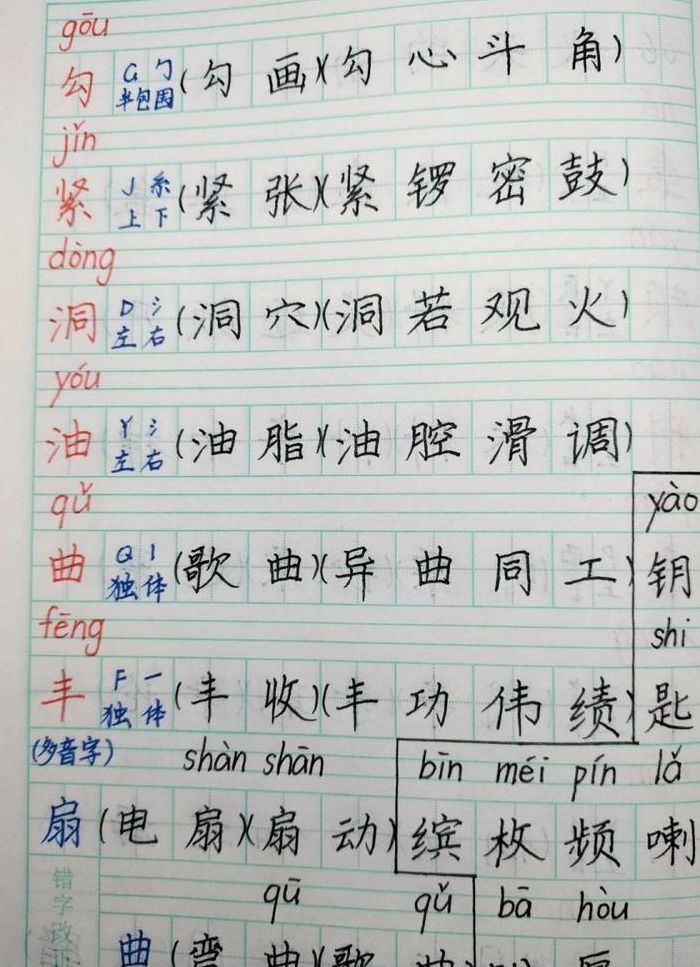 gōu
勾 G 勹 (勾画)(勾心斗角)
半包围
jǐn
紧 J 糸 (紧张)(紧锣密鼓)
上下
dòng
洞 D 氵 (洞穴)(洞若观火)
左右
yóu
油 Y 氵 (油脂)(油腔滑调)
左右
qǔ yào
曲 Q 丨 (歌曲)(异曲同工) 钥
独体
fēng shi
丰 F 一 (丰收)(丰功伟绩) 匙
独体
(多音字) shàn shān bīn méi pín lǎ
扇 (电扇)(扇动) 缤枚频喇
qū qǔ bā hòu
错字改正
曲 (弯曲)(歌曲)